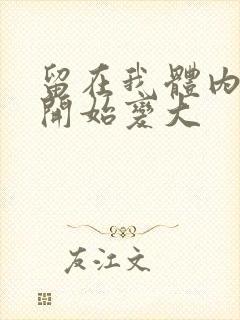 留在我體內
開始變大
友江文